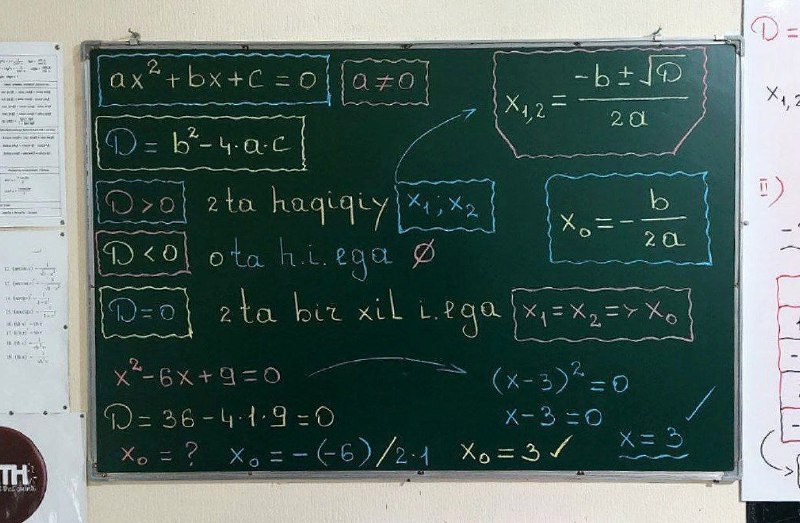 ax²+bx+c=0 a≠0
x₁,₂ = (-b±√D)/2a
D = b²-4·a·c
D>0 2ta haqiqiy x₁; x₂
x₀ = - b/2a
D<0 0ta h.i. ega ∅
D=0 2ta bir xil i. ega x₁=x₂=>x₀
x²-6x+9=0
(x-3)²=0
D=36-4·1·9=0
x-3=0
x₀=? x₀=-(-6)/2·1 x₀=3 ✓
x=3 ✓
D=
x₁,₂
II)
TH